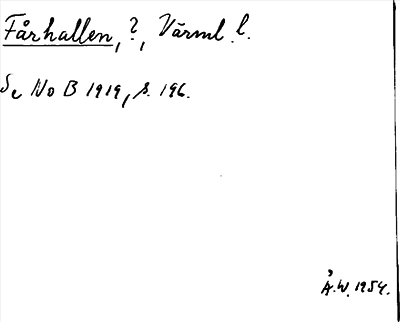 Fårhallen, ?, Värml. l.
Se No B 1919, s. 196.
Å.W. 1954.